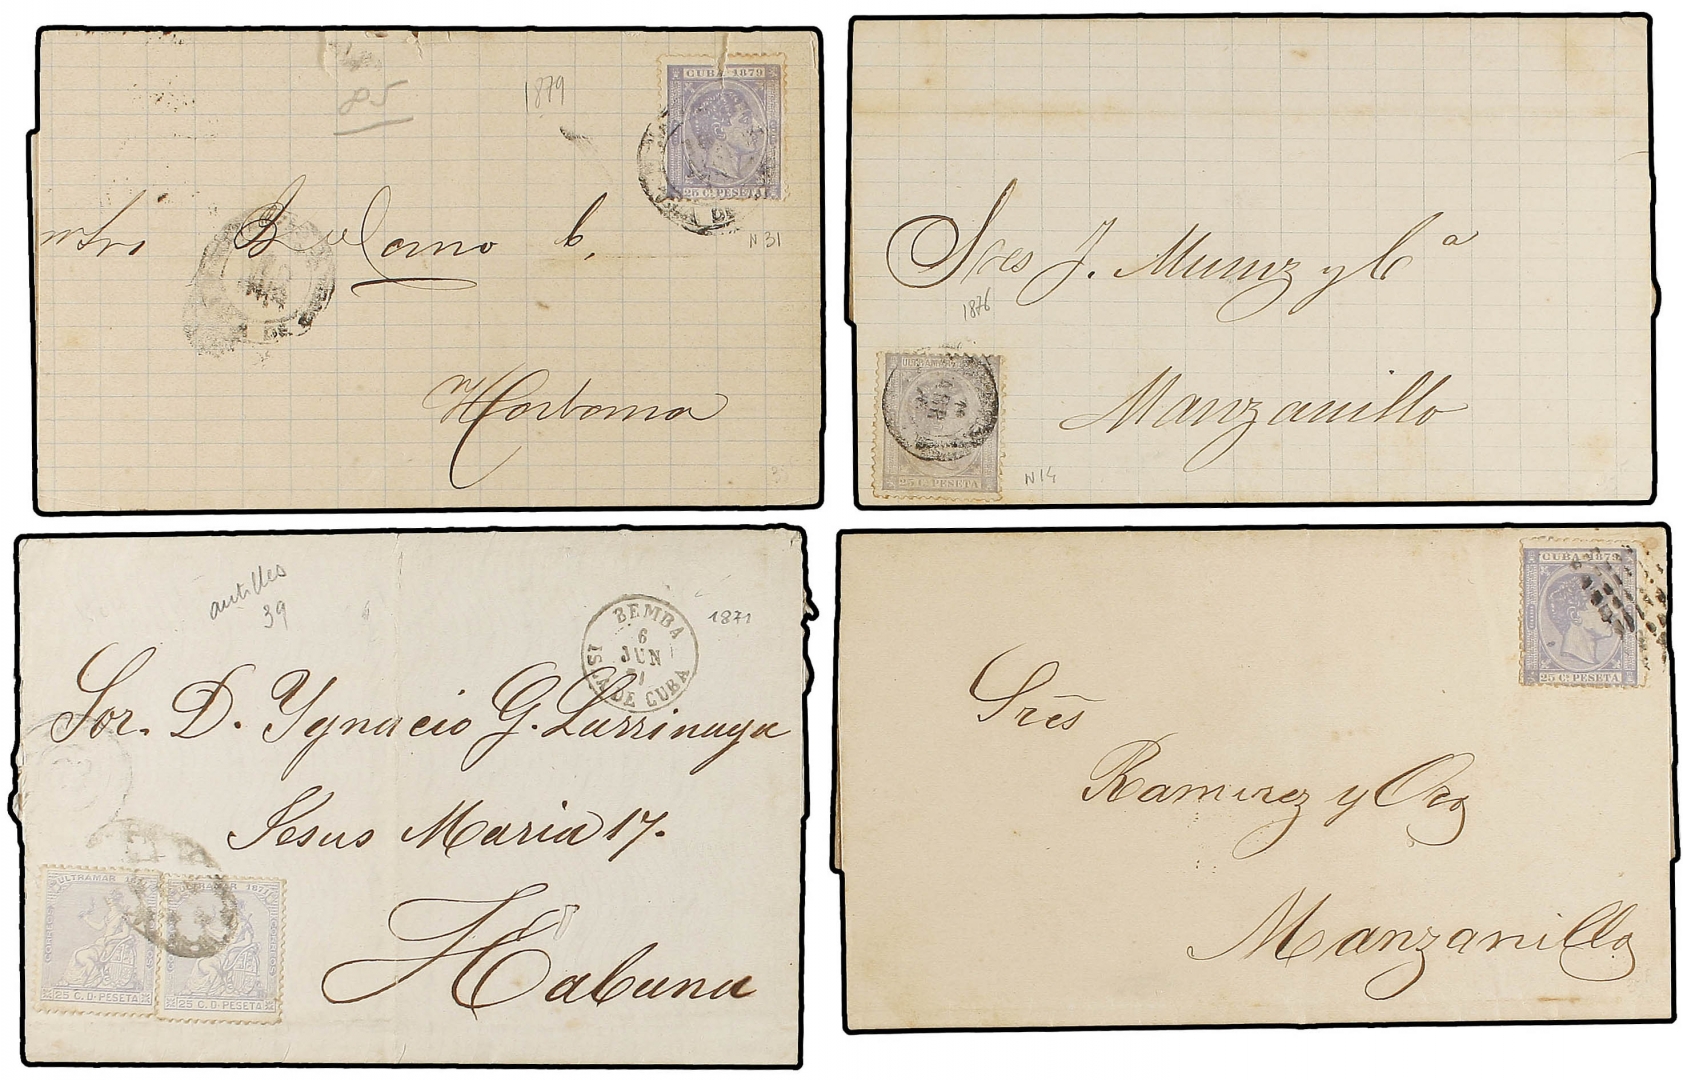 85
1879
CUBA 1879
25 Cs PESETA
DE
N 31
b.
Sres J. Muniz y Cª
1876
Manzanillo
25 Cs PESETA
N 14
antilles
39
BEMBA
6
JUN
71
ISLA DE CUBA
1871
Sor. D. Ygnacio G. Larrinaga
Jesus Maria 17.
Habana
ULTRAMAR
CORREOS
25 C. D. PESETA
ULTRAMAR 1871
CORREOS
25 C. D. PESETA
CUBA 1879
25 Cs PESETA
Sres
Ramirez y Oro
Manzanillo